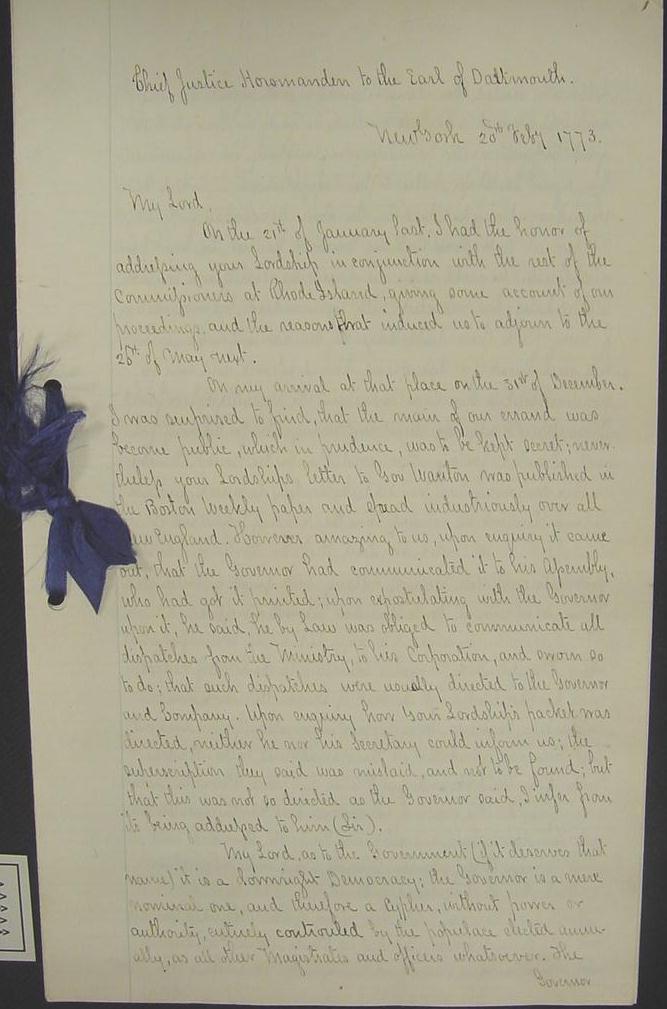 Chief Justice Horsmanden to the Earl of Dartmouth.
New York 20th Feby 1773.
My Lord,
On the 21st of January last, I had the honor of
addressing your Lordship in conjunction with the rest of the
Commissioners at Rhode Island, giving some account of our
proceedings, and the reasons that induced us to adjourn to the
26th of May next.
On my arrival at that place on the 31st of December.
I was surprised to find, that the main of our errand was
become public, which in prudence, was to be kept secret; never-
theless your Lordships letter to Gov Wanton was published in
the Boston Weekly paper and spead industriously over all
New England. However amazing to us, upon enquiry it came
out, that the Governor had communicated it to his Assembly,
who had got it printed; upon expostulating with the Governor
upon it, he said, he by Law was obliged to communicate all
dispatches from the Ministry, to his Corporation, and sworn so
to do; that such dispatches were usually directed to the Governor
and Company. Upon enquiry how your Lordship's packet was
directed, neither he nor his Secretary could inform us; the
superscription they said was mislaid, and not to be found; but
that this was not so directed as the Governor said, I infer from
its being addressed to him (Sir).
My Lord, as to the Government (if it deserves that
name) it is a downright Democracy; the Governor is a mere
nominal one, and therefore a cypher, without power or
authority, entirely controuled by the populace elected annu-
ally, as all other Magistrates and officers whatsoever. The
Governor